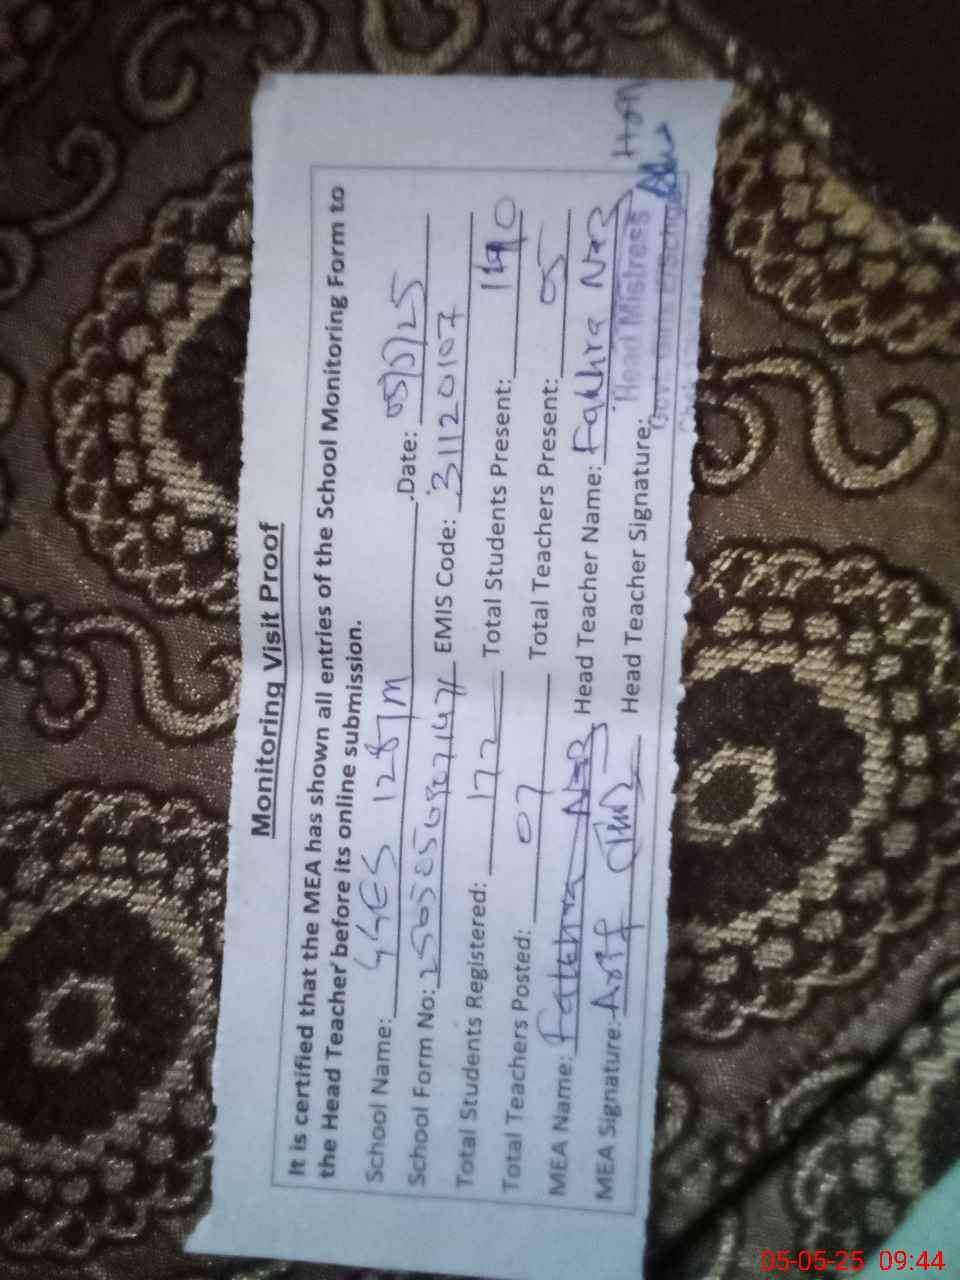 Monitoring Visit Proof
It is certified that the MEA has shown all entries of the School Monitoring Form to
the Head Teacher before its online submission.
School Name: GGES 128/M Date: 05/5/25
School Form No: EMIS Code: 31120107
Total Students Registered: 172 Total Students Present:
Total Teachers Posted: 07 Total Teachers Present: 05
MEA Name: Head Teacher Name: Fakhra Naz
MEA Signature: Arif Head Teacher Signature:
Head Mistress
Govt. Girls E/School
05-05-25 09:44